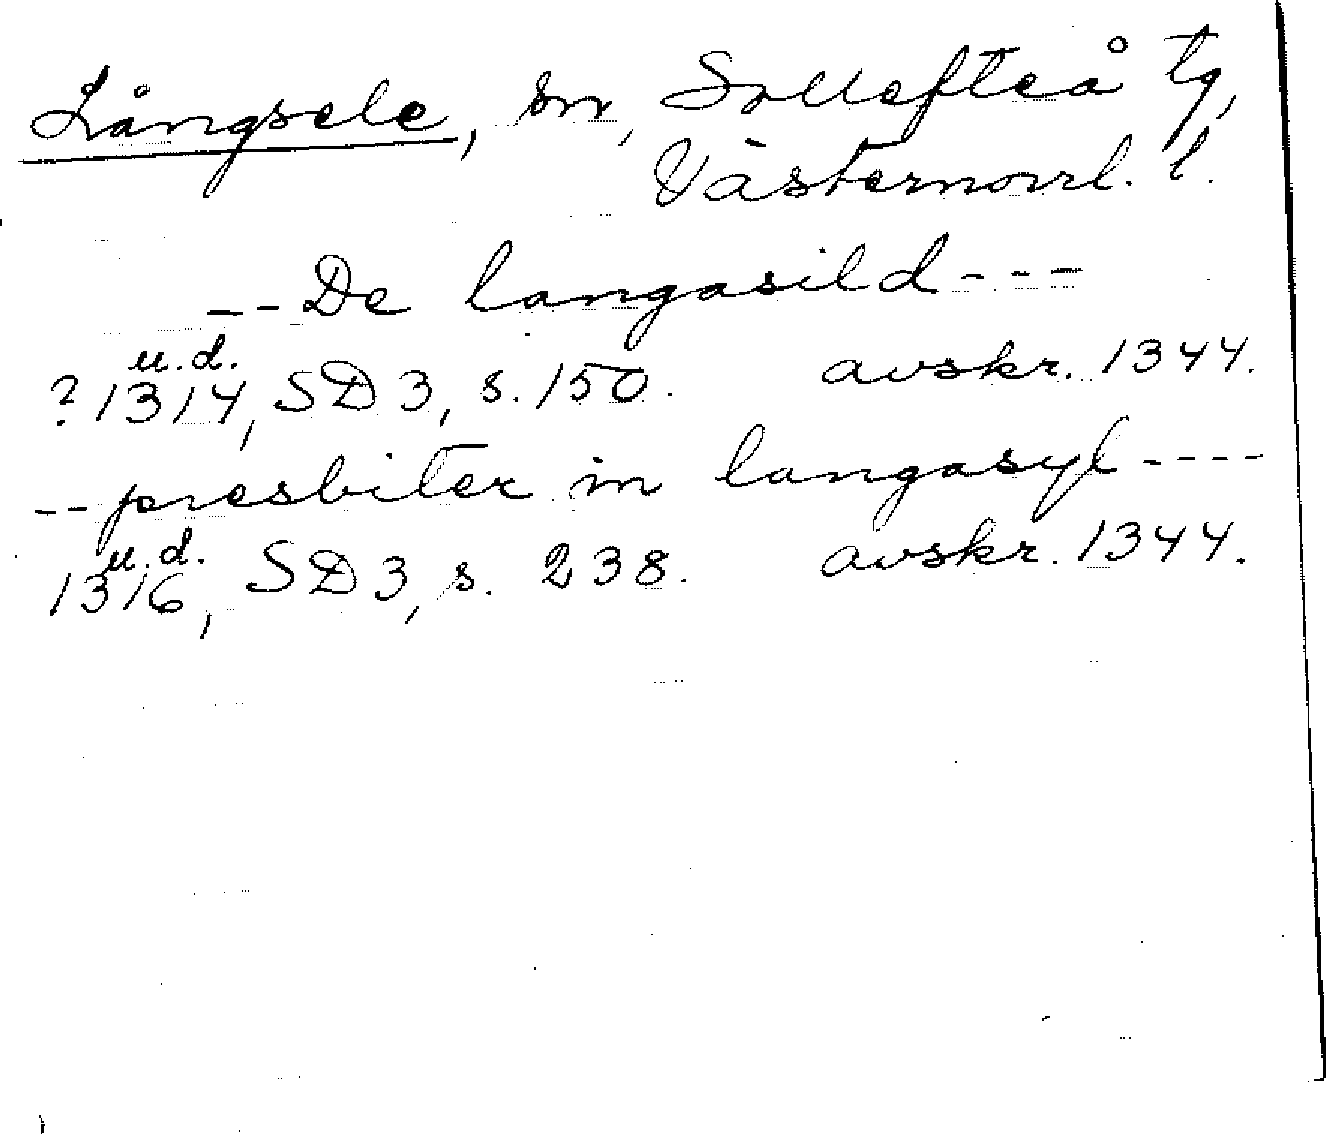 Långsele, sn, Sollefteå tg,
Västernorrl. l.
-- De langasild ---
? 1314 u.d., SD 3, s. 150. avskr. 1344.
-- presbiter in langasyl ----
1316 u.d., SD 3, s. 238. avskr. 1344.